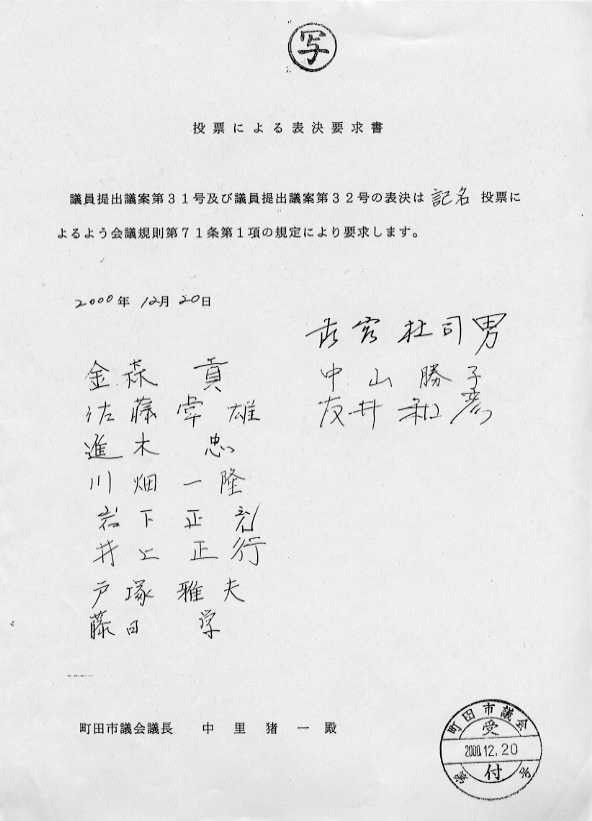 写
投票による表決要求書
議員提出議案第31号及び議員提出議案第32号の表決は 記名 投票に
よるよう会議規則第71条第1項の規定により要求します。
2000年 12月 20日
金森 貢
佐藤 常雄
進木 忠
川畑一隆
岩下正
井上正行
戸塚雅夫
藤田 学
古宮杜司男
中山勝子
友井和彦
町田市議会議長 中里猪一殿
町田市議会
受
2000.12.20
付
第 号